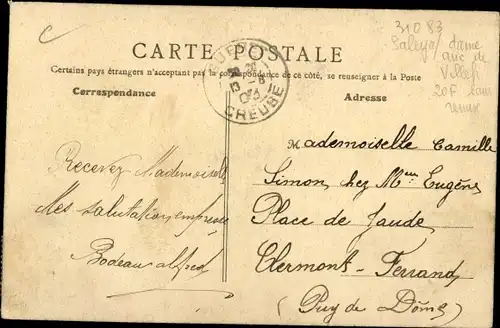 31083
dame
CARTE POSTALE
Certains pays étrangers n'acceptant pas la correspondance de ce côté, se renseigner à la Poste
Correspondance
Adresse
CREUSE
Recevez Mademoiselle
Mes salutations empressées
Bodeau alfred
Mademoiselle Camille
Simon, chez Mme Eugène
Place de Jaude,
Clermont-Ferrand,
(Puy de Dôme)